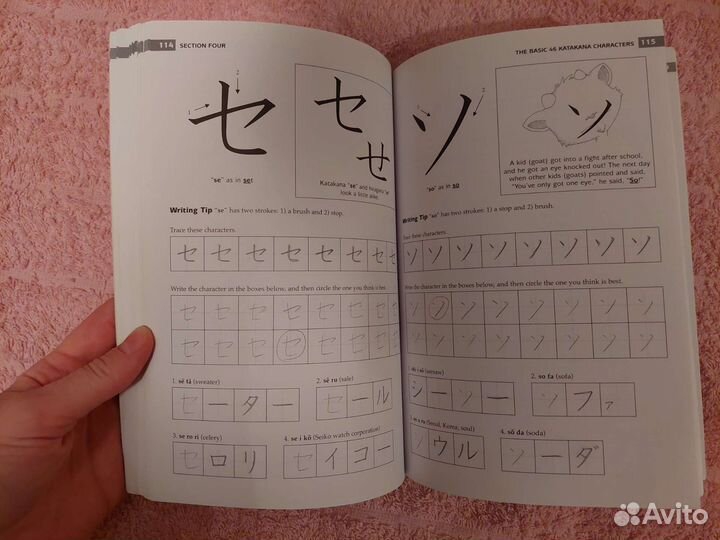 114 SECTION FOUR
1
2
セ
セ
せ
"se" as in set
Katakana "se" and hiragana "se"
look a little alike.
Writing Tip "se" has two strokes: 1) a brush and 2) stop.
Trace these characters.
セ セ セ セ セ セ セ セ
Write the character in the boxes below, and then circle the one you think is best.
セ セ セ セ セ セ セ セ
セ セ セ セ セ セ セ セ
1. sē tā (sweater)
セ ー タ ー
2. sē ru (sale)
セ ー ル
3. se ro ri (celery)
セ ロ リ
4. se i kō (Seiko watch corporation)
セ イ コ ー
THE BASIC 46 KATAKANA CHARACTERS 115
1
2
ソ
ソ
"so" as in so
A kid (goat) got into a fight after school,
and he got an eye knocked out! The next day
when other kids (goats) pointed and said,
"You've only got one eye," he said, "So!"
Writing Tip "so" has two strokes: 1) a stop and 2) brush.
Trace these characters.
ソ ソ ソ ソ ソ ソ ソ ソ
Write the character in the boxes below, and then circle the one you think is best.
ソ ソ ソ ソ ソ ソ ソ ソ
ソ ソ ソ ソ ソ ソ ソ ソ
1. shī sō (seesaw)
シ ー ソ ー
2. so fa (sofa)
ソ フ ァ
3. so u ru (Seoul, Korea; soul)
ソ ウ ル
4. sō da (soda)
ソ ー ダ
Avito